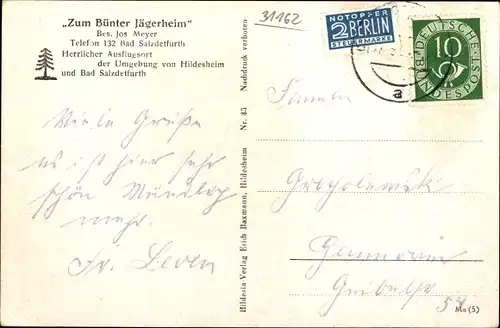 „Zum Bünter Jägerheim"
Bes. Jos Meyer
Telefon 132 Bad Salzdetfurth
Herrlicher Ausflugsort
der Umgebung von Hildesheim
und Bad Salzdetfurth
Viele Grüße
es ist hier sehr
schön Mündlich
mehr.
Fr. Leven
Hildesia-Verlag Erich Baxmann, Hildesheim Nr. 85 Nachdruck verboten
31162
NOTOPFER
2 BERLIN
STEUERMARKE
DEUTSCHE
BUNDESPOST
10
a
Germ
54
Mo (5)